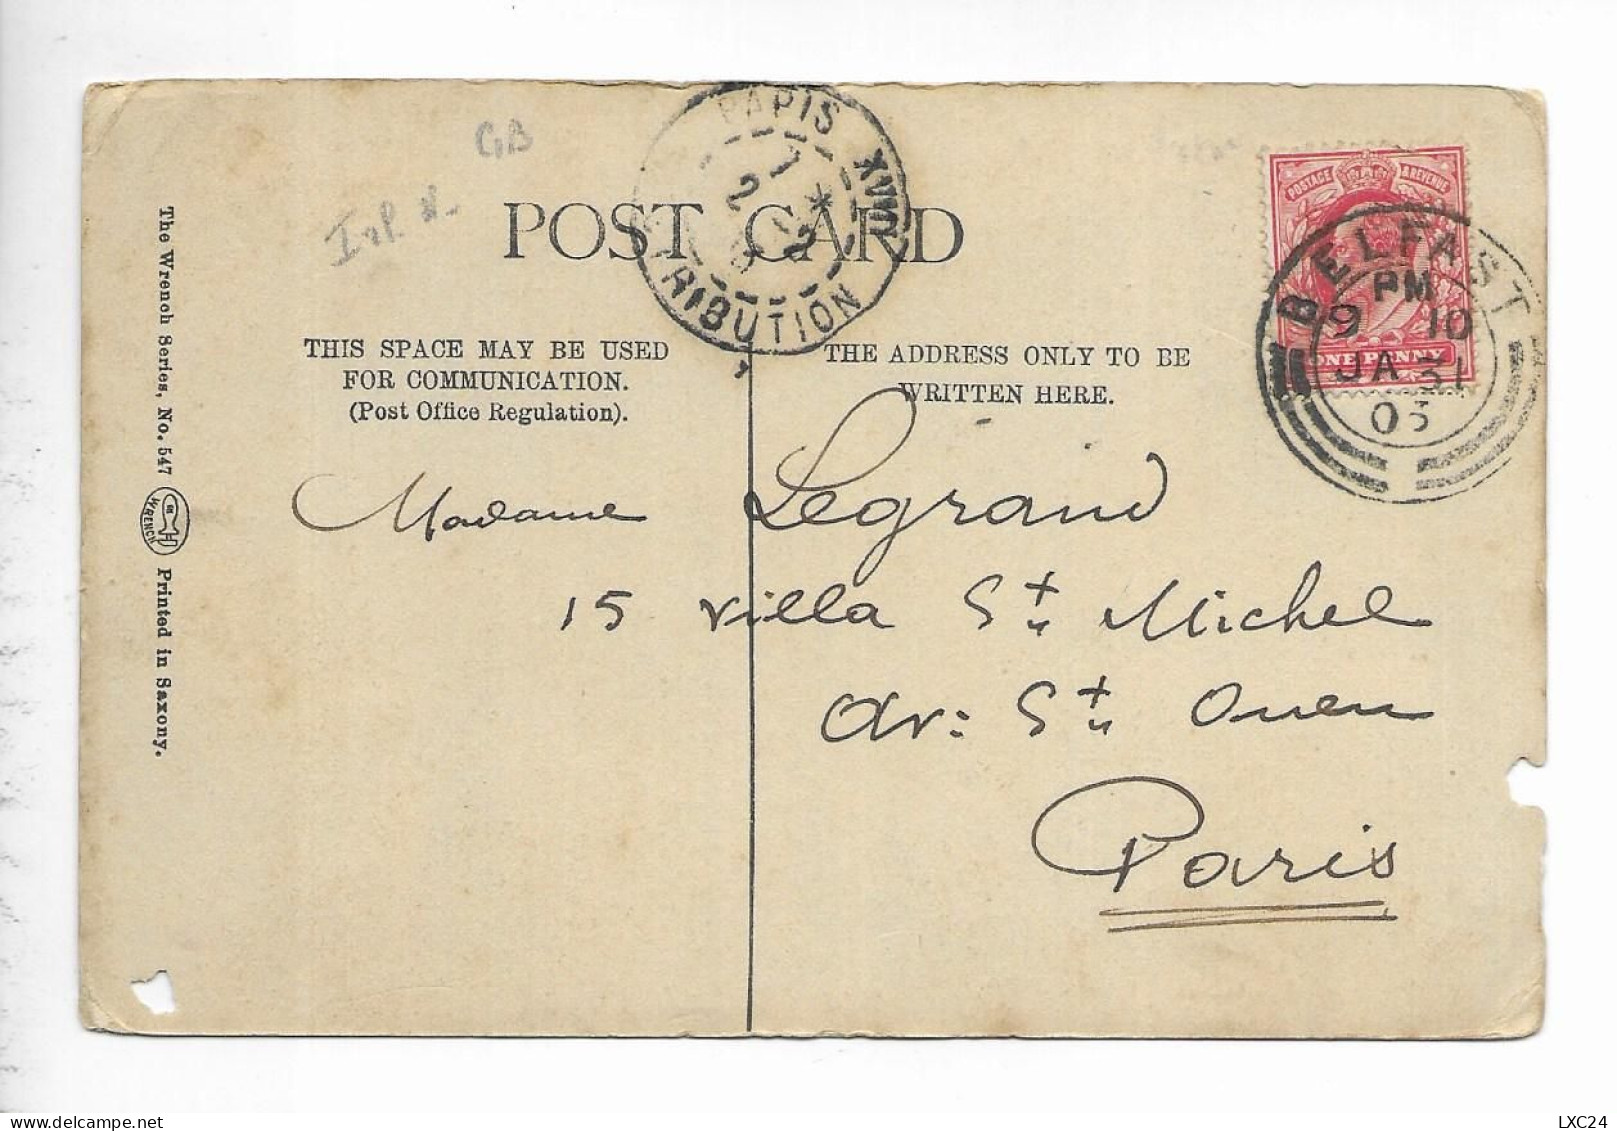 GB
PARIS XVIII
7
2 *
2
DISTRIBUTION
POST CARD
THIS SPACE MAY BE USED
FOR COMMUNICATION.
(Post Office Regulation).
THE ADDRESS ONLY TO BE
WRITTEN HERE.
POSTAGE & REVENUE
ONE PENNY
BELFAST
PM
9 10
JA 31
03
Madame Legrand
15 villa St Michel
Av: St Ouen
Paris
The Wrench Series, No. 547
WRENCH
Printed in Saxony.
LXC24